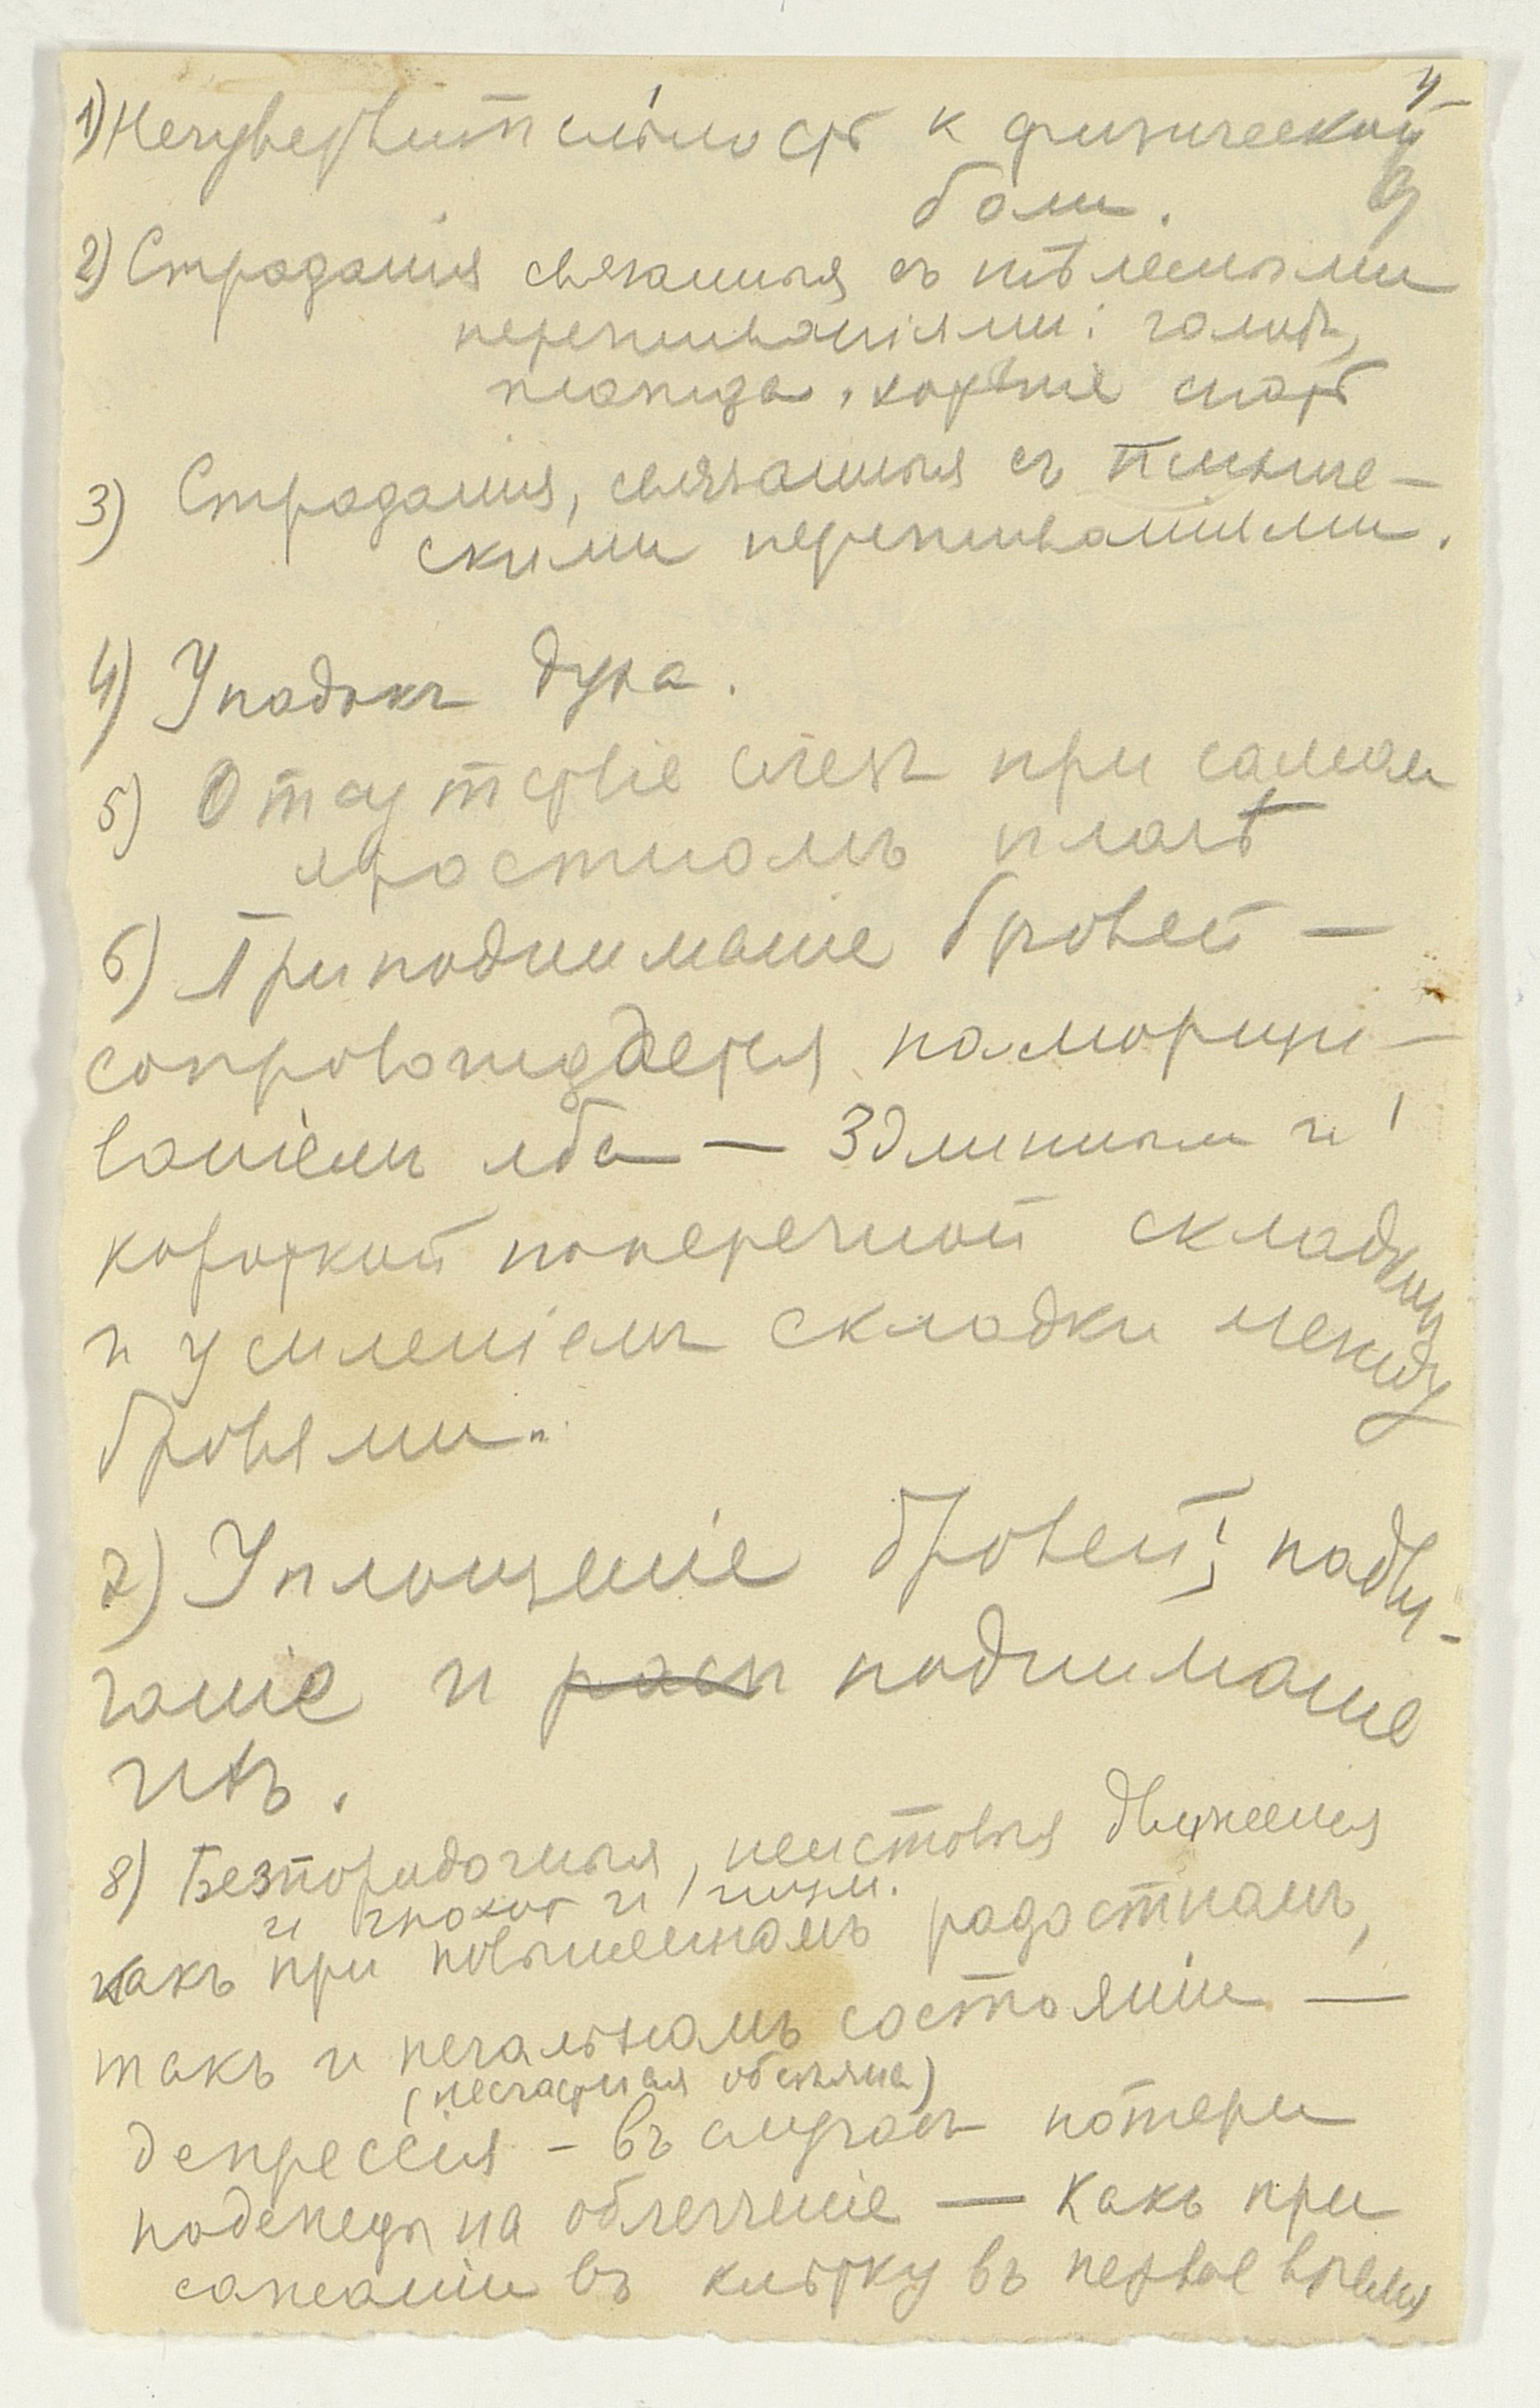 4
1) Нечувствительность к физической
9
боли.
2) Страданія связанныя съ тѣлесными
переживаніями: голодъ,
жажда,
3) Страданія, связанныя съ психиче-
скими переживаніями.
4) Упадокъ духа.
5) Отсутствіе слезъ при самомъ
яростномъ плачѣ
6) Приподниманіе бровей —
сопровождается наморщи-
ваніемъ лба — 3 длинным и 1
короткой поперечной складками
и усиленіемъ складки между
бровями.
7) Уплощеніе бровей; надви-
ганіе и расп подниманіе
ихъ.
8) Безпорядочныя, неистовыя движенія
и хохот и
какъ при повышенномъ радостномъ,
такъ и печальномъ состояніи —
(несчастная обезьяна)
депрессія — въ случаѣ потери
надежды на облегченіе — какъ при
сажаніи въ клѣтку въ первое время